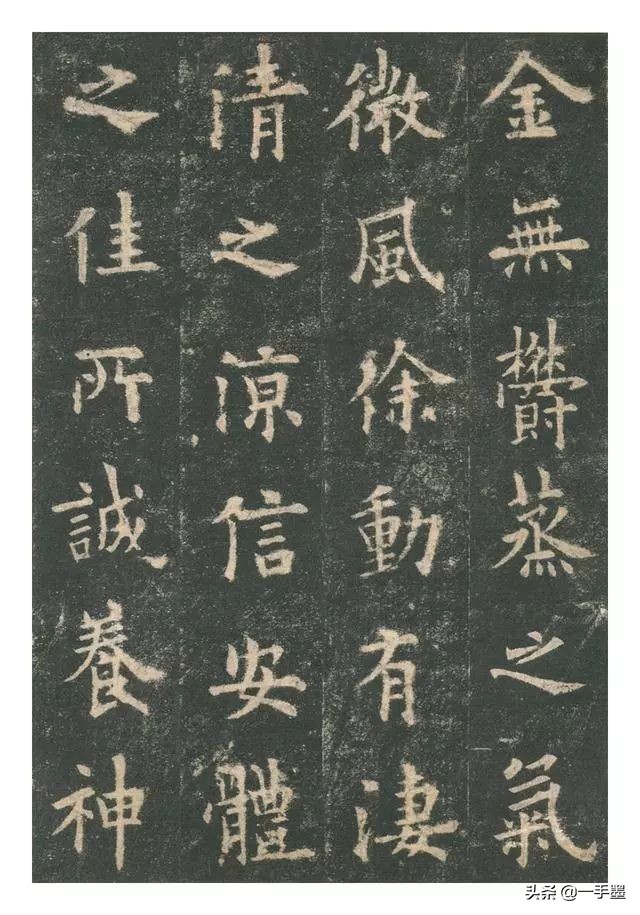 金無欝蒸之氣
微風徐動有淒
清之涼信安體
之佳所誠養神
头条 @一手墨